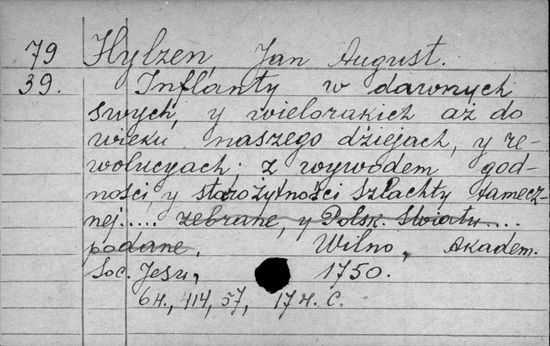 79 Hylzen, Jan August.
39. Inflanty w dawnych
swych, y wielorakich aż do
wieku naszego dziejach, y re-
wolucyach; z wywodem god-
ności y starożytności szlachty tamecz-
nej..... zebrane, y Polsk. Światu....
podane. Wilno, Akadem.
Soc. Jesu, 1750.
6 H., 414, 57, 17 H. C.